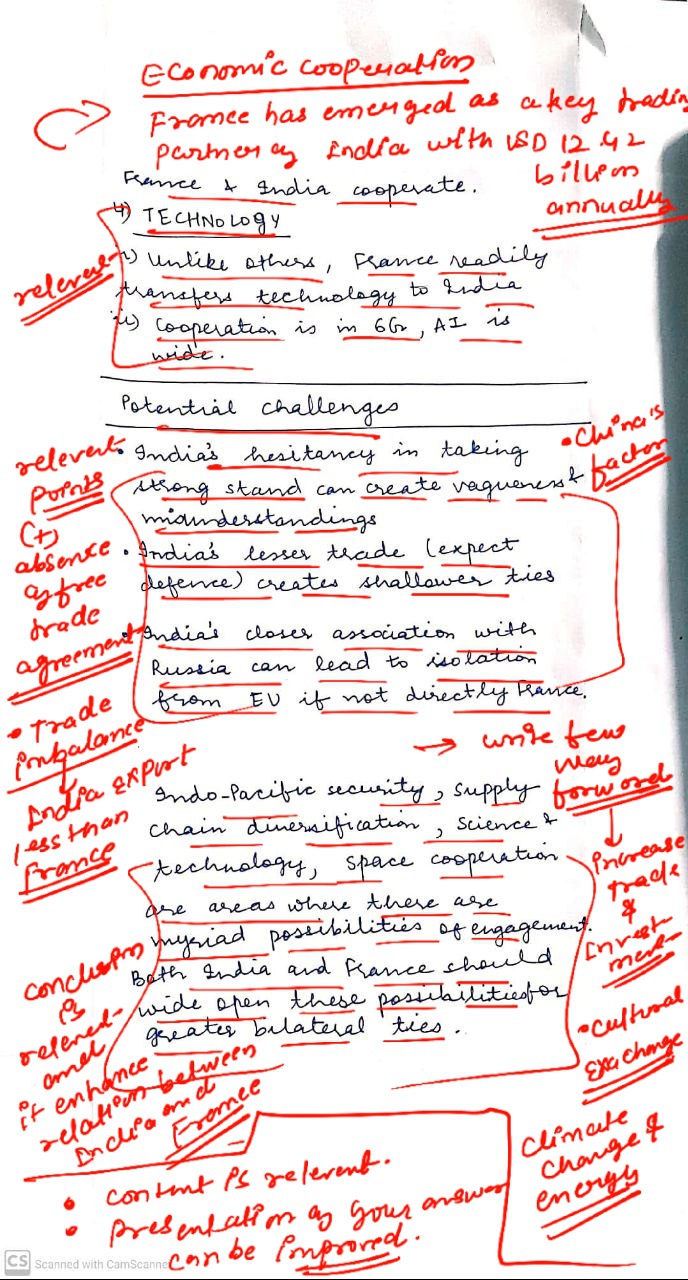 Economic cooperation
France has emerged as a key trading
partner of India with USD 12.42
billion
annually
France & India cooperate.
4) TECHNOLOGY
relevent
i) Unlike others, France readily
transfers technology to India
ii) Cooperation is in 6G, AI is
wide.
Potential challenges
relevent
points
(+)
absence
of free
trade
agreement
• Trade
imbalance
India export
less than
France
• India's hesitancy in taking
strong stand can create vagueness &
misunderstandings
• India's lesser trade (expect
defence) creates shallower ties
• India's closer association with
Russia can lead to isolation
from EU if not directly France.
• China's
factor
→ write few
way
forword
Increase
trade
&
Invest
ment
• Cultural
exchange
Climate
change &
energy
Indo-Pacific security, supply
chain diversification, science &
technology, space cooperation
are areas where there are
myriad possibilities of engagement.
Both India and France should
wide open these possibilities for
greater bilateral ties.
conclusion
is
relevent
and
it enhance
relation between
India and
France
• content is relevent.
• presentation of your answer
can be improved.
CS Scanned with CamScanner